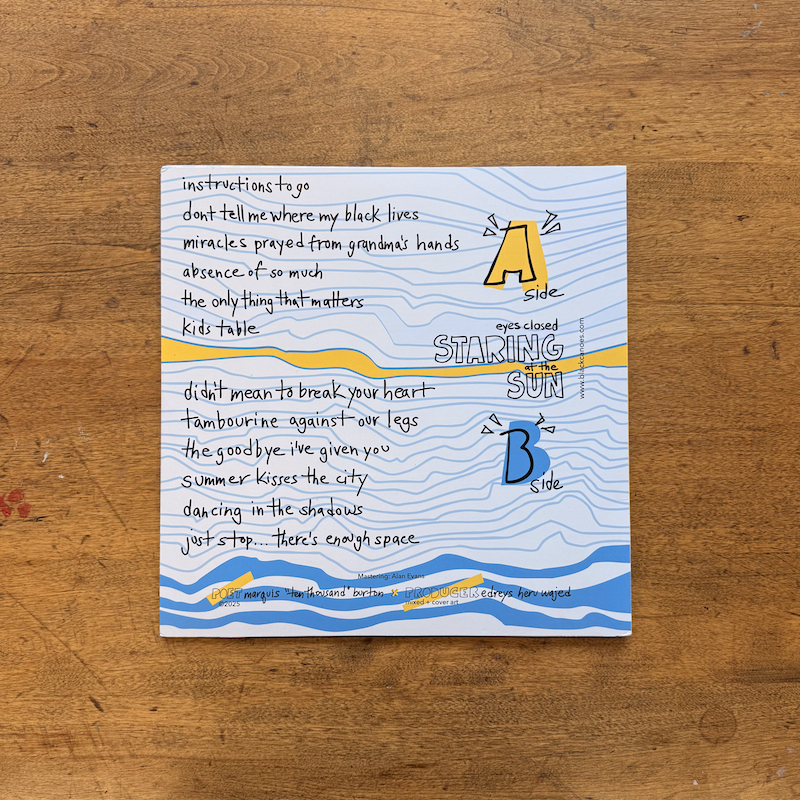 instructions to go
dont tell me where my black lives
miracles prayed from grandma's hands
absence of so much
the only thing that matters
kids table
A
side
eyes closed
STARING
at the
SUN
www.blackcanoes.com
didn't mean to break your heart
tambourine against our legs
the goodbye i've given you
summer kisses the city
dancing in the shadows
just stop... there's enough space
B
side
Mastering: Alan Evans
POET marquis "ten thousand" burton x PRODUCER edreys heru wajed
©2025
mixed + cover art